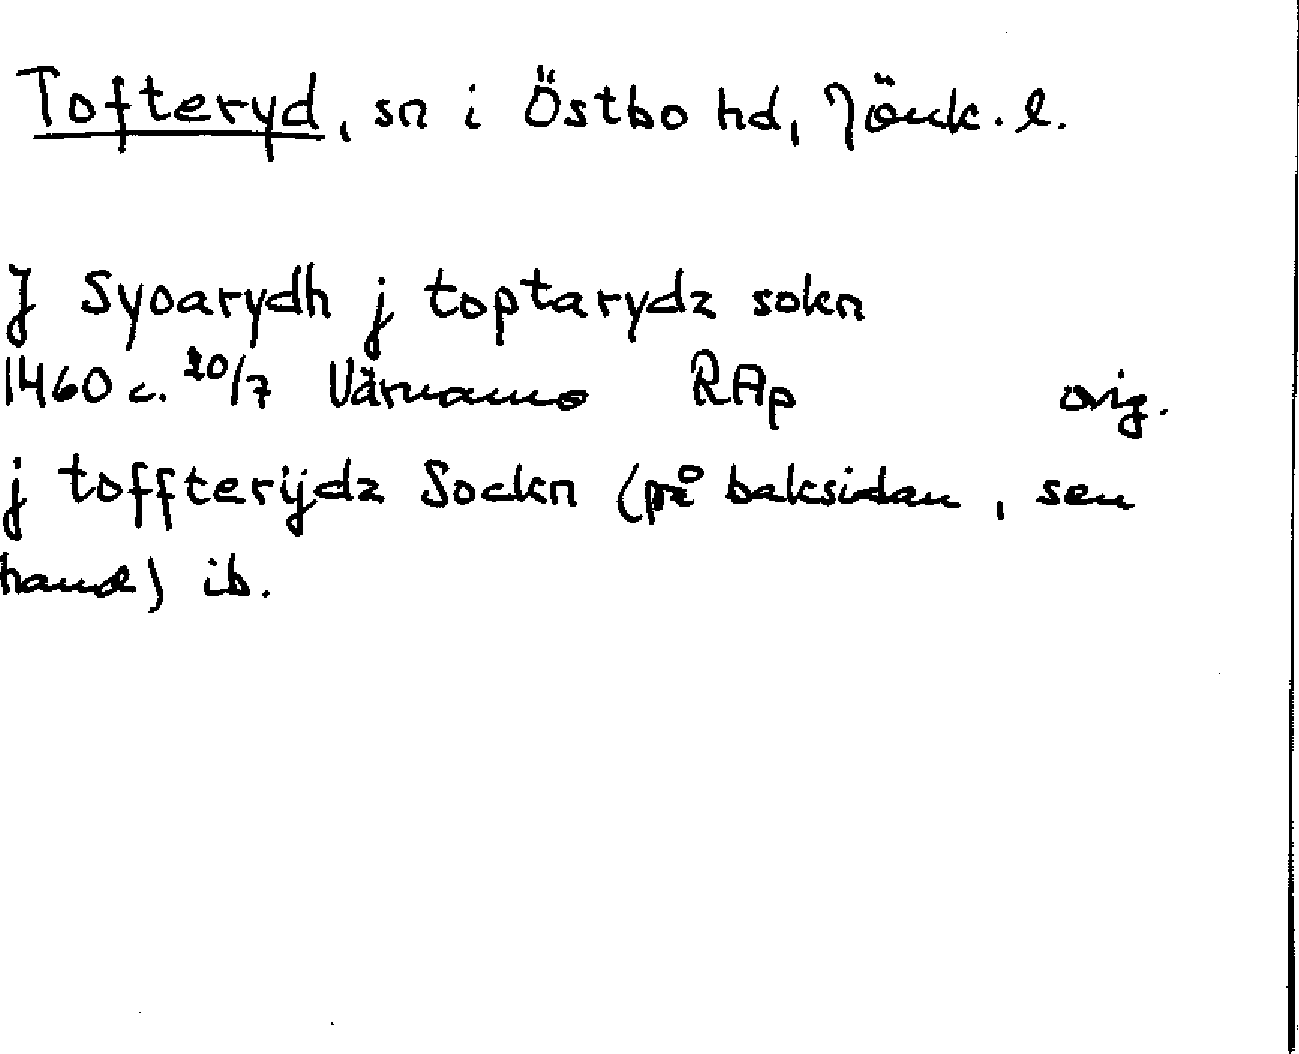 Tofteryd, sn i Östbo hd, Jönk. l.
J Syoarydh j toptarydz sokn
1460 c. 20/7 Värnamo RAp orig.
j toffterijdz Sockn (på baksidan, sen
hand) ib.